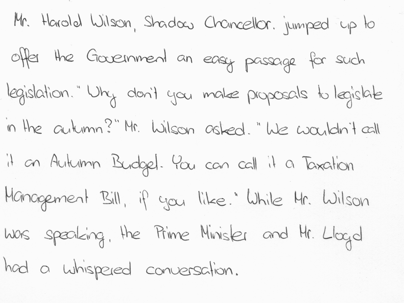 Mr. Harold Wilson, Shadow Chancellor. jumped up to
offer the Government an easy passage for such
legislation. "Why don't you make proposals to legislate
in the autumn?" Mr. Wilson asked. "We wouldn't call
it an Autumn Budget. You can call it a Taxation
Management Bill, if you like." While Mr. Wilson
was speaking, the Prime Minister and Mr. Lloyd
had a whispered conversation.